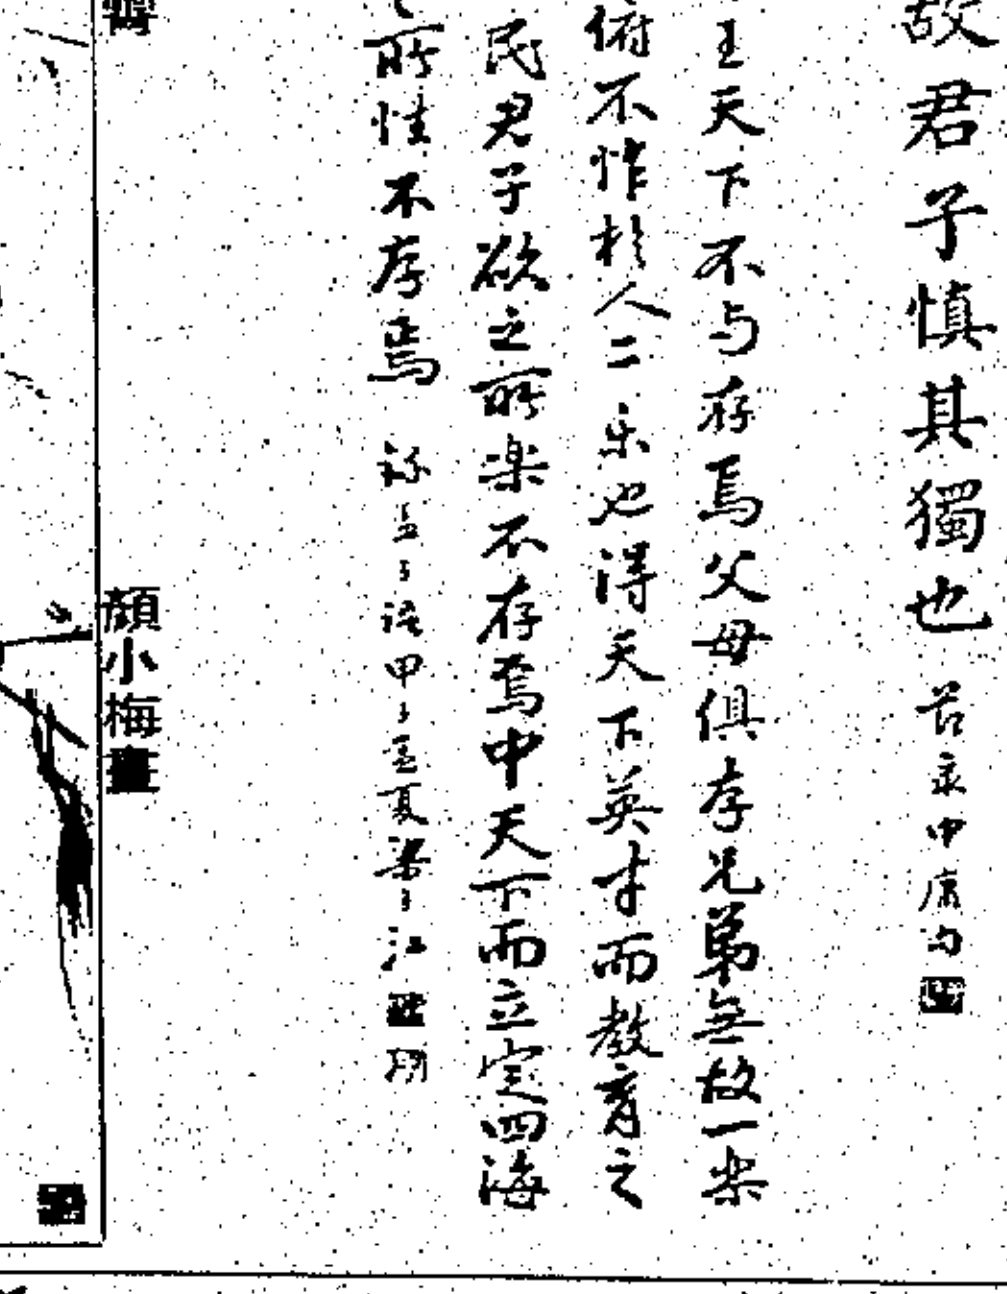 故君子慎其獨也
中庸句
王天下不与存焉父母俱存兄弟無故一楽
俯不怍於人二乐也得天下英才而教育之
民君子欲之所楽不存焉中天下而立定四海
所性不存焉
夏
江
顏小梅畫